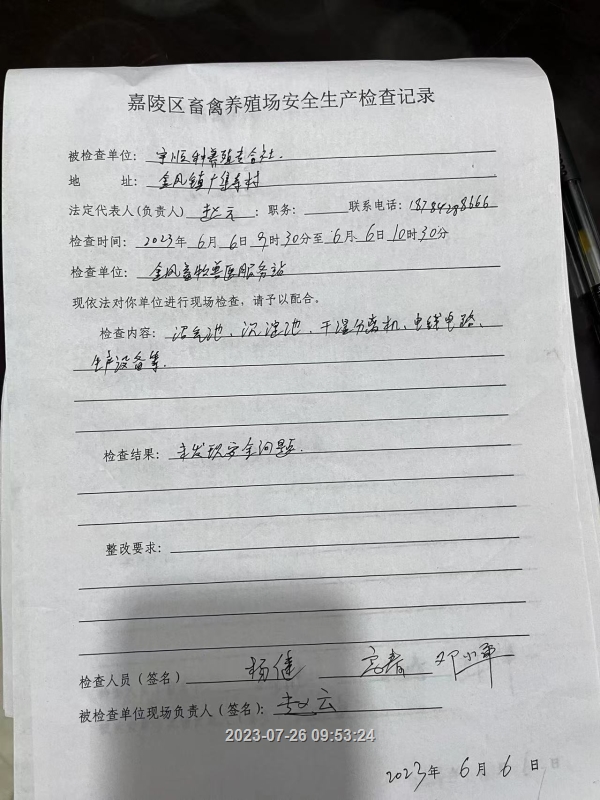 嘉陵区畜禽养殖场安全生产检查记录
被检查单位：宇顺种养殖专合社.
地 址：金凤镇广集寺村
法定代表人(负责人) 赵云：职务： 联系电话：
检查时间：2023年6月6日9时30分至6月6日10时30分
检查单位：金凤畜牧兽医服务站
现依法对你单位进行现场检查，请予以配合。
检查内容：沼气池、沉淀池、干湿分离机、电线电路、
生产设备等.
检查结果：未发现安全问题.
整改要求：
检查人员（签名） 杨健 邓小军
被检查单位现场负责人（签名）：赵云
2023-07-26 09:53:24
2023年6月6日